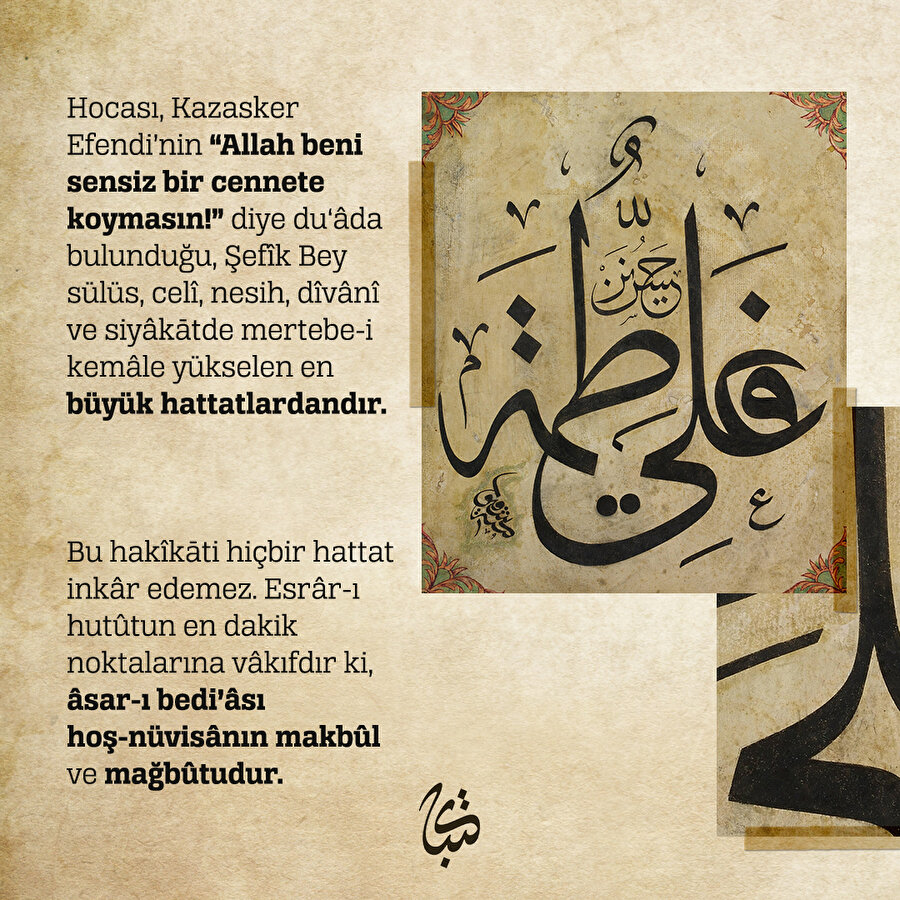 Hocası, Kazasker
Efendi’nin “Allah beni
sensiz bir cennete
koymasın!” diye du‘âda
bulunduğu, Şefîk Bey
sülüs, celî, nesih, dîvânî
ve siyâkātde mertebe-i
kemâle yükselen en
büyük hattatlardandır.
Bu hakîkāti hiçbir hattat
inkâr edemez. Esrâr-ı
hutûtun en dakik
noktalarına vâkıfdır ki,
âsar-ı bedi’âsı
hoş-nüvisânın makbûl
ve mağbûtudur.
علي
فاطمة